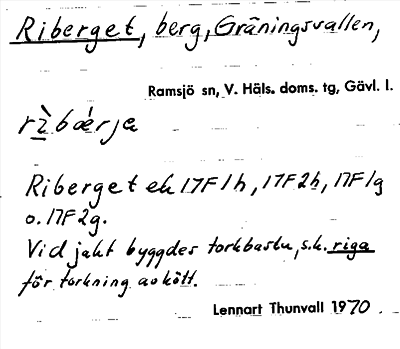 Riberget, berg, Gräningsvallen,
Ramsjö sn, V. Häls. doms. tg, Gävl. l.
rìbǽrja
Riberget ek 17F1h, 17F2h, 17F1g
o. 17F2g.
Vid jakt byggdes torkbastu, s.k. riga
för torkning av kött.
Lennart Thunvall 1970.